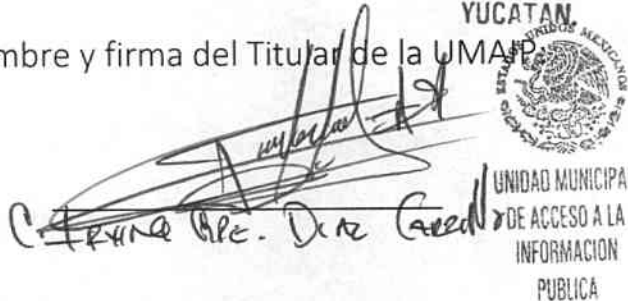 YUCATAN.
mbre y firma del Titular de la UMAIP.
ESTADOS UNIDOS MEXICANOS
C. IRVING GPE. DIAZ
UNIDAD MUNICIPA
DE ACCESO A LA
INFORMACION
PUBLICA